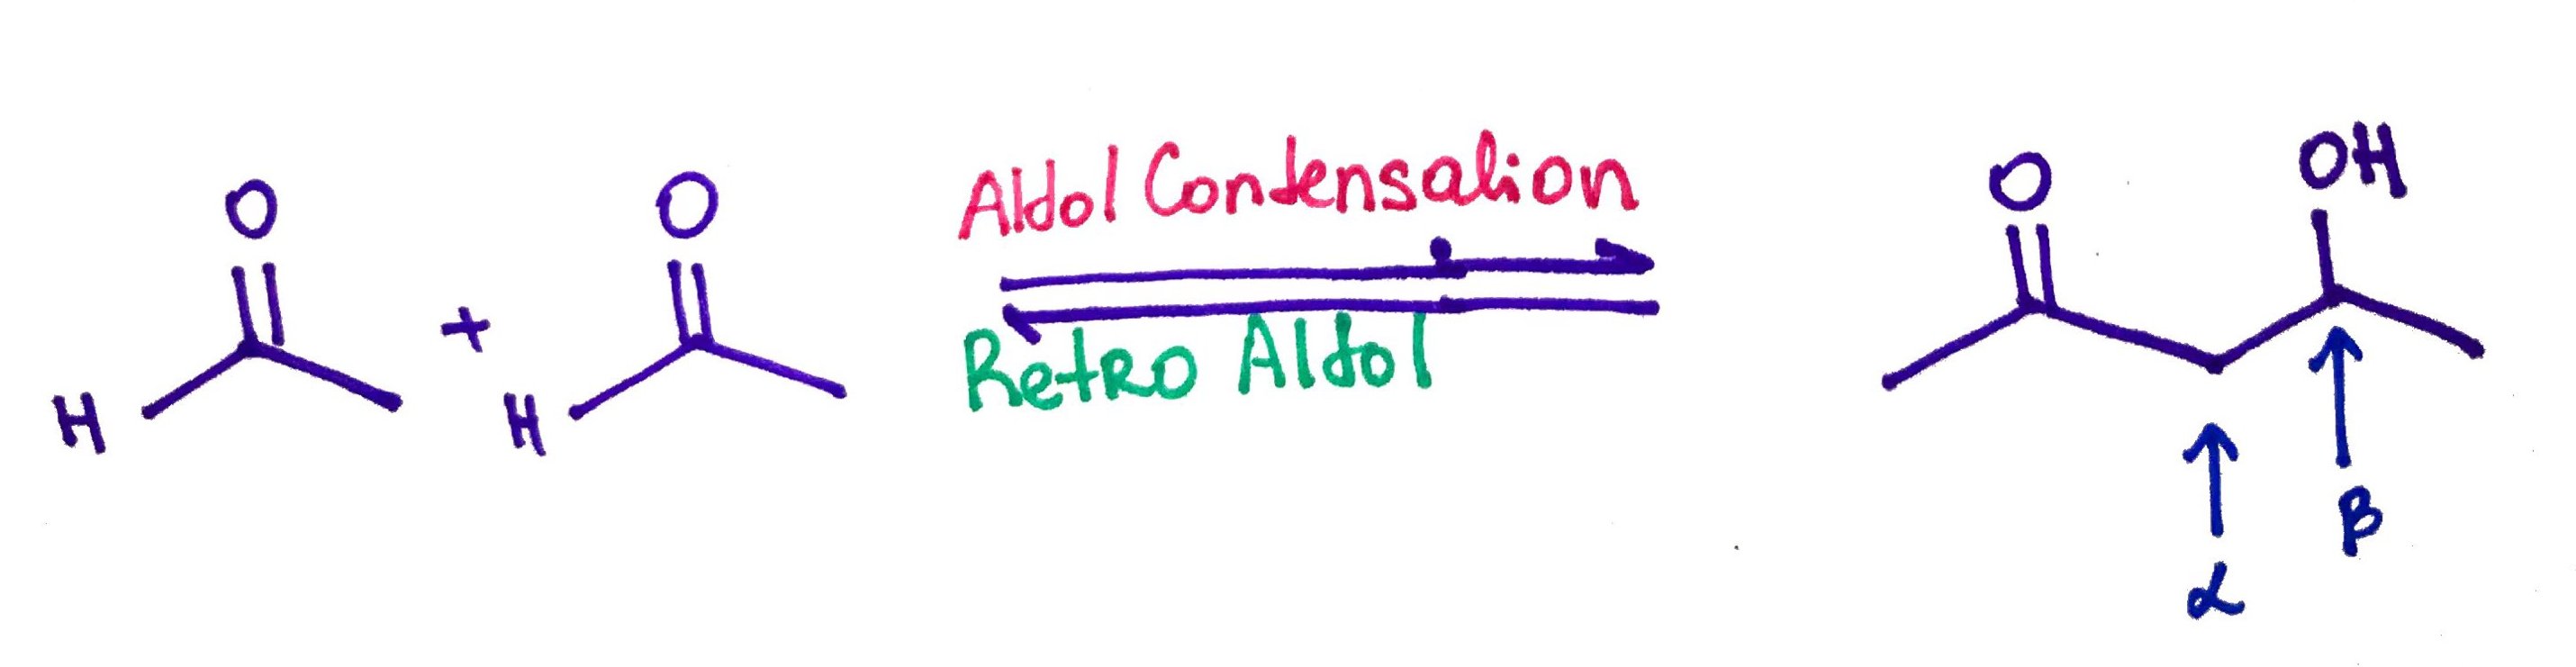 O
H
+
O
H
Aldol Condensation
Retro Aldol
O
OH
α
β